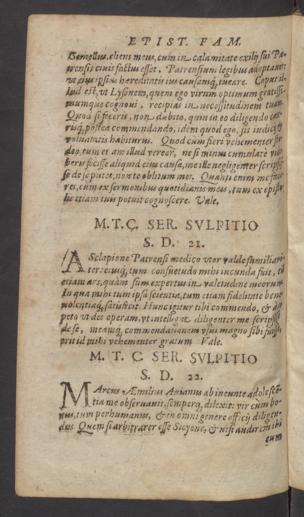 EPIST. FAM.
Gemellus, cliens meus, cum in calamitate exilij sui Pa-
trensis ciuis factus esset, Patrensium legibus adoptauit:
ut eius ipsius hereditatis ius causamq; tueare. Caput il-
lud est, ut Lysonem, quem ego virum optimum gratissi-
mumque cognoui, recipias in necessitudinem tuam.
Quod si feceris, non dubito, quin in eo diligendo cæ-
terisq; postea commendando, idem quod ego, sis iudicij &
voluntatis habiturus. Quod cum fieri vehementer stu-
deo, tum etiam illud vereor, ne si minus cumulatè vide-
beris fecisse aliquid eius causa, me ille negligenter scripsis-
se de se putet, non te oblitum mei. Quanti enim me face-
res, cum ex sermonibus quotidianis meis, tum ex episto-
lis etiam tuis potuit cognoscere. Vale.
M. T. C. SER. SVLPITIO
S. D. 21.
ASclapione Patrensi medico vtor valde familiari-
ter: eiusq; tum consuetudo mihi iucunda fuit, tum
etiam ars, quam sum expertus in valetudine meorum:
In qua mihi tum ipsa scientia, tum etiam fidelitate bene-
uolentiaq; satisfecit. Hunc igitur tibi commendo, & à te
peto ut des operam, vt intelligat diligenter me scripsisse
de se, meamq; commendationem vsui magno sibi fuisse.
Erit id mihi vehementer gratum Vale.
M. T. C. SER. SVLPITIO
S. D. 22.
MArcus Æmilius Auianus ab ineunte adolescen-
tia me obseruauit, semperq; dilexit: vir cum bo-
nus, tum perhumanus, & in omni genere officij diligen-
dus Quem si arbitrarer esse Sicyone, & nisi audirem ibi
eum